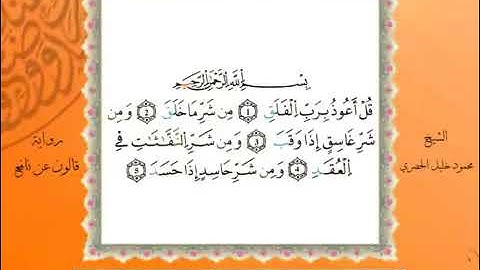 بِسْمِ اللَّهِ الرَّحْمَٰنِ الرَّحِيمِ
قُلْ أَعُوذُ بِرَبِّ اِ۬لْفَلَقِ ۝1 مِن شَرِّ مَا خَلَقَ ۝2 وَمِن
شَرِّ غَاسِقٍ إِذَا وَقَبَ ۝3 وَمِن شَرِّ اِ۬لنَّفَّٰثَٰتِ فِے
اِ۬لْعُقَدِ ۝4 وَمِن شَرِّ حَاسِدٍ إِذَا حَسَدَ ۝5
الشيخ
محمود خليل الحصري
رواية
قالون عن نافع